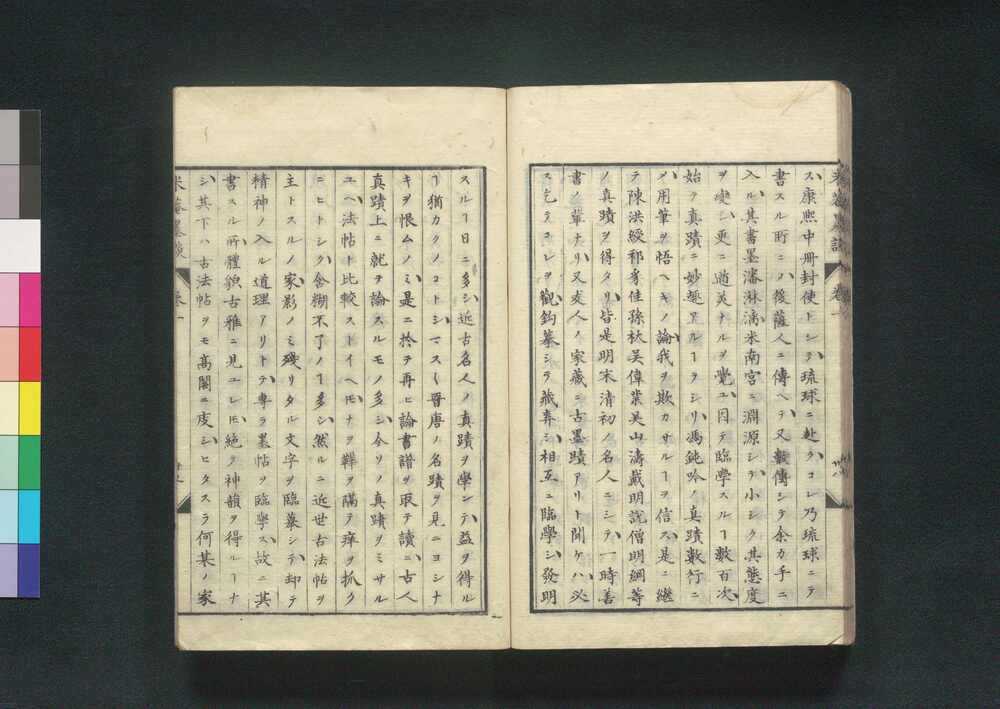 ス康熙中冊封使トシテ琉球ニ赴ククコレ乃琉球ニテ
書スル所ニハ後薩人ニ傳ヘテ又數傳シテ余カ手ニ
入ル其書墨瀋淋漓米南宮ニ淵源シラ小シク其態度
ヲ變シ更ニ遒美ナルヲ覺ユ因テ臨學スルヿ數百次
始テ真蹟ニ妙趣アルヿヲシリ馮鈍吟ノ真蹟數行ニ
メ用筆ヲ悟ヘキノ論我ヲ欺カサルヿヲ信ス是ニ繼
テ陳洪綬祁豸佳孫杕吴偉業吴山濤戴明説僧明綱等
ノ真蹟ヲ得タリ皆是明末清初ノ名人ニシテ一時善
書ノ輩ナリ又友人ノ家藏ニ古墨蹟アリト聞ケハ必
ス乞テコレヲ觀鈎摹シラ藏弆シ相互ニ臨學シ發明
スルヿ日ニ多シ近古名人ノ真蹟ヲ學ンテ益ヲ得ル
ヿ猶カクノコトシマス〱晋唐ノ名蹟ヲ見ニヨシナ
キヲ恨ムノミ是ニ於テ再ヒ論書譜ヲ取テ讀ニ古人
真蹟上ニ就ヲ論スルモノ多シ今ソノ真蹟ヲミサル
ユヘ法帖ト比較ストイヘ𪜈ナヲ鞾ヲ隔テ痒ヲ抓ク
ニヒトシク含糊不了ノヿ多シ然ルニ近世古法帖ヲ
主トスルノ家影ノミ殘リタル文字ヲ臨摹シテ却テ
精神ノ入ル道理アリトテ專ラ墨帖ヲ臨學ス故ニ其
書スル所體貌古雅ニ見ユレ𪜈絶ヲ神韻ヲ得ルヿナ
シ其下ハ古法帖ヲモ高閣ニ庋シヒタスラ何某ノ家
米菴墨談 卷一